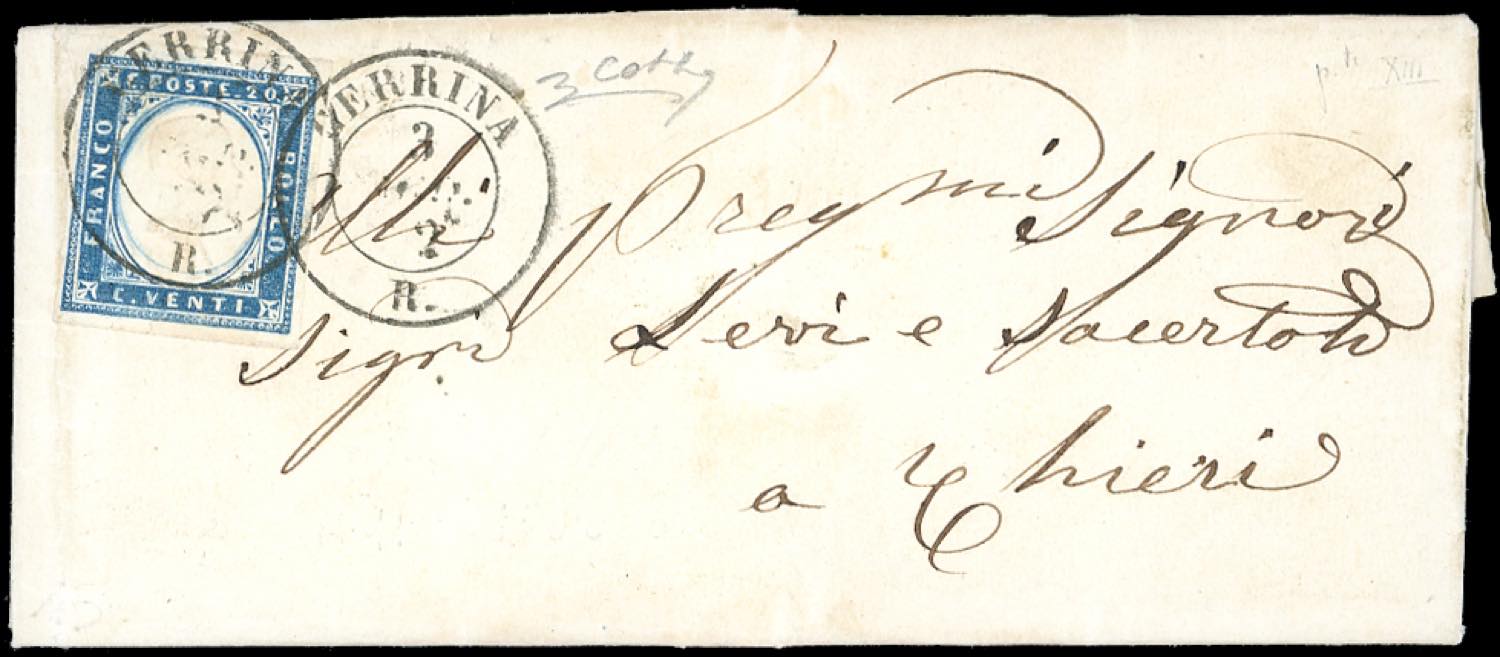 C. POSTE. 20
FRANCO
BOLLO
C. VENTI
ERRINA
R.
VERRINA
2
2
R.
3 Cotty
XIII
Alli Pregmi Signori
Sigri Levi e Sacerdoti
a Chieri